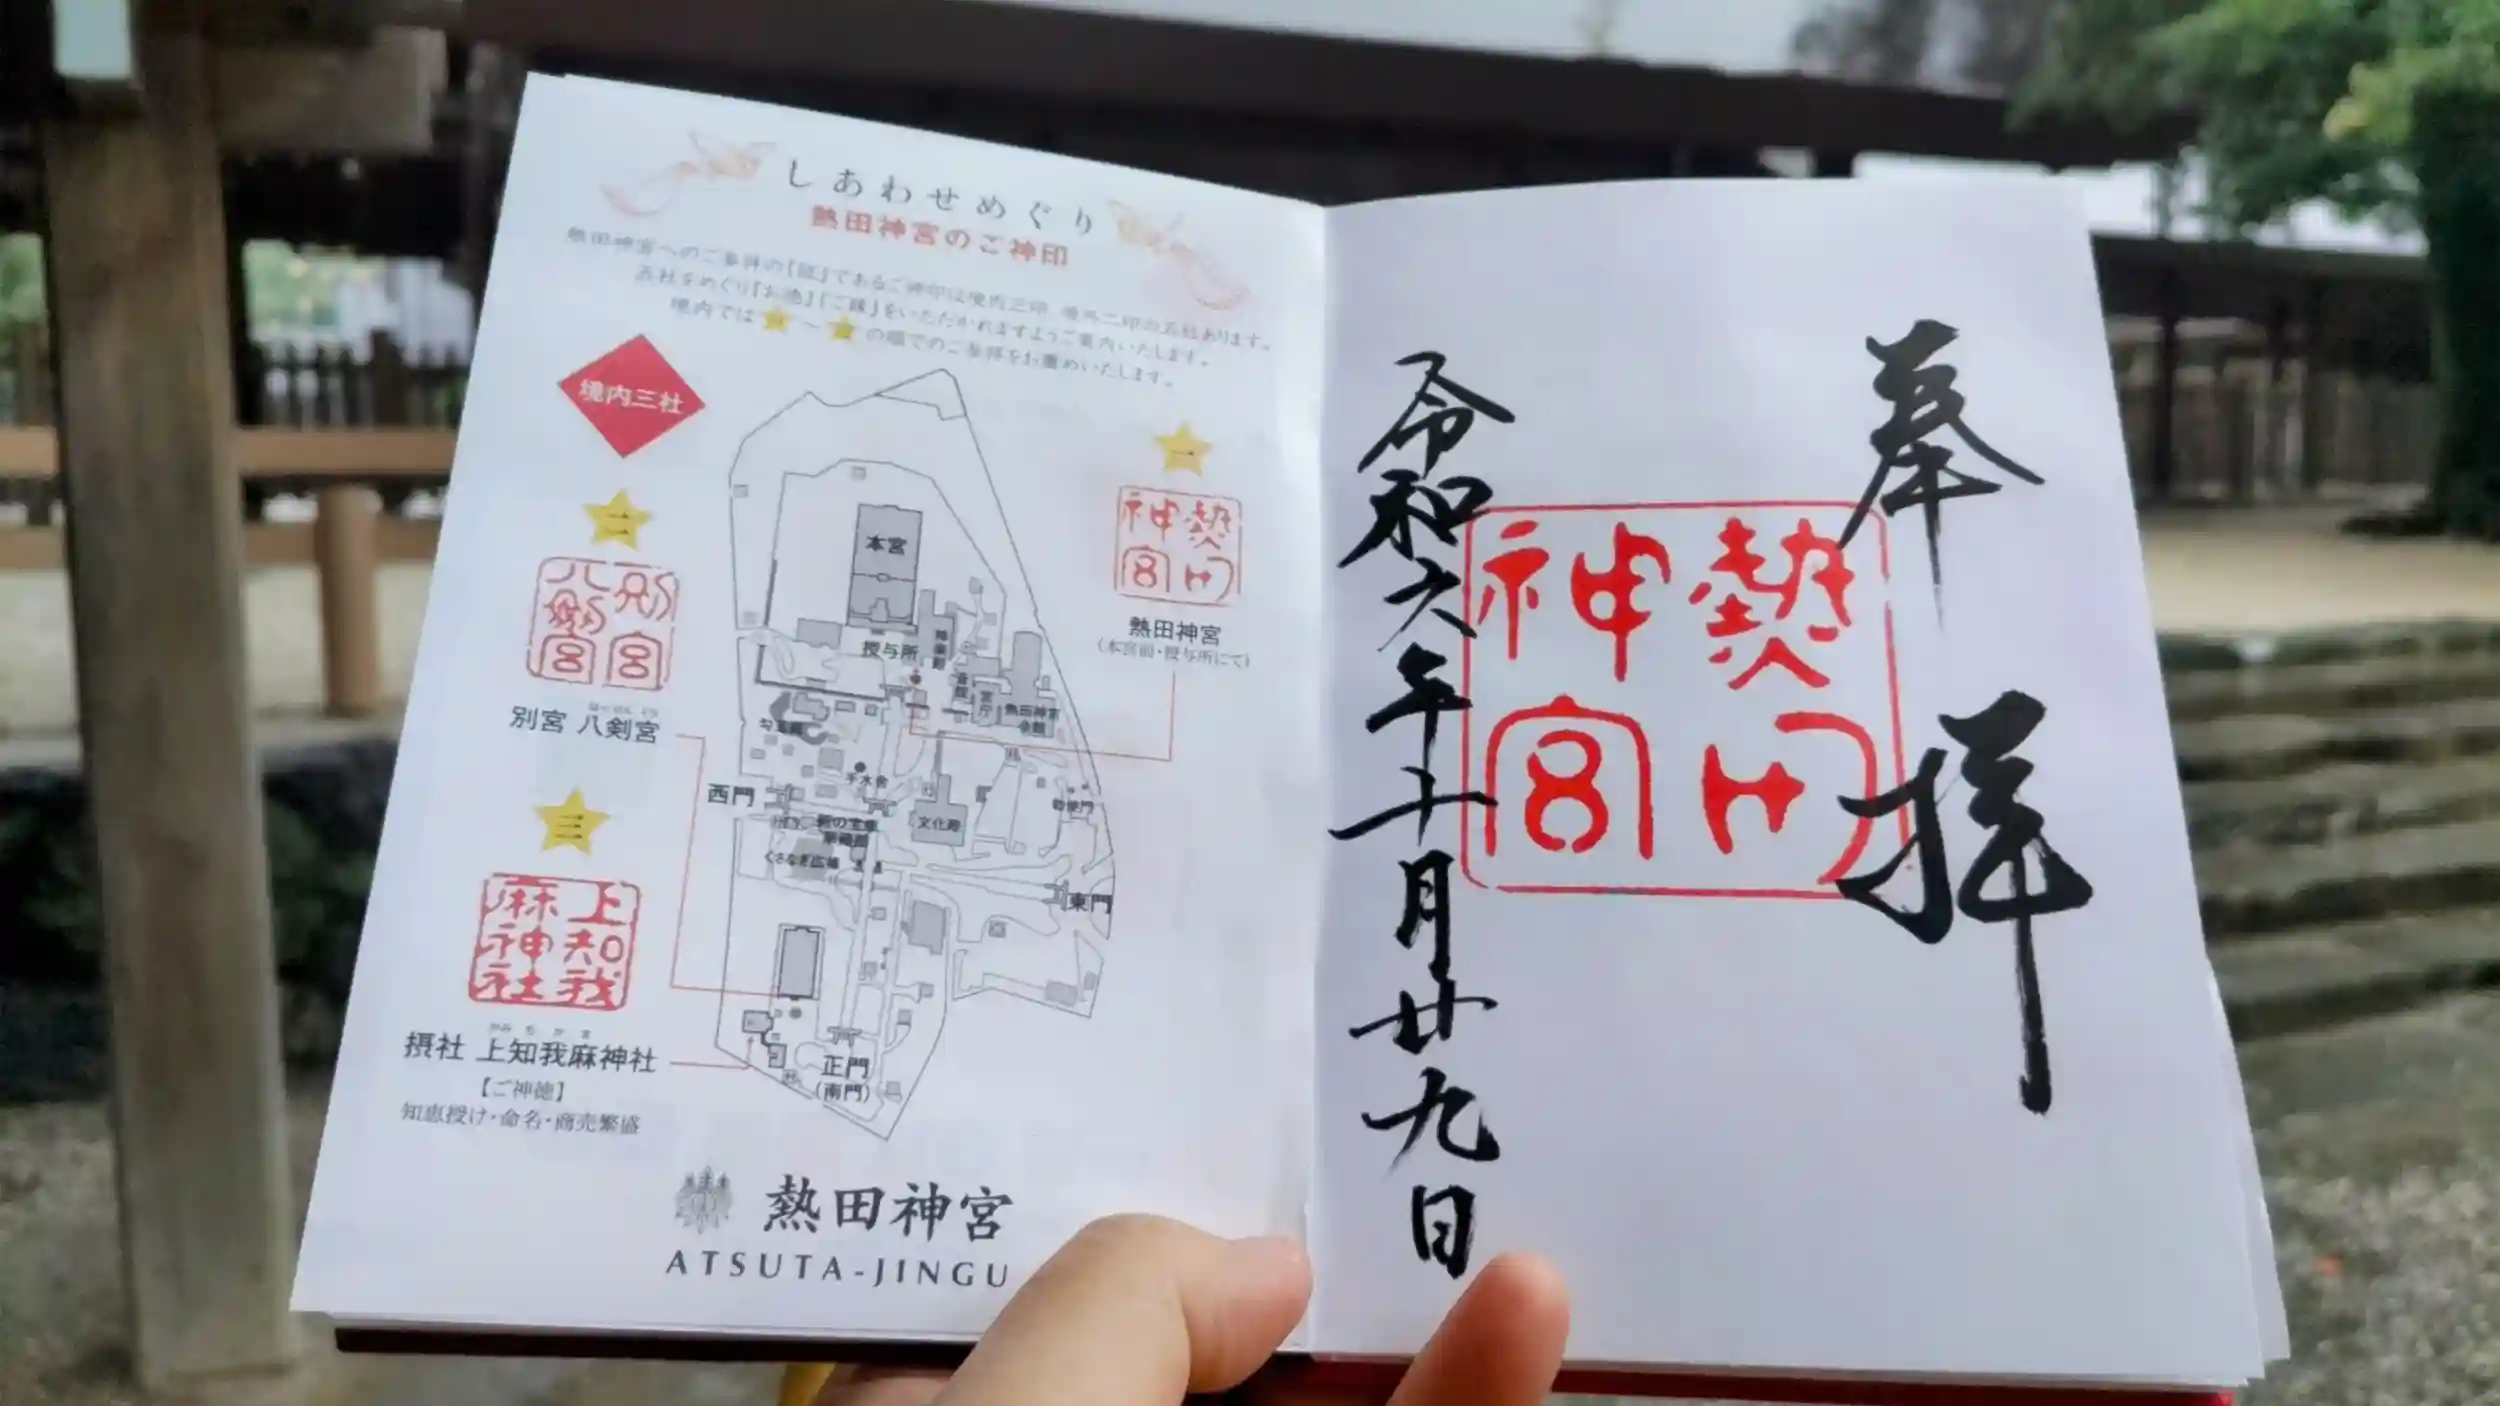 しあわせめぐり
熱田神宮のご神印
熱田神宮へのご参拝の「証」であるご神印は境内三印、境外二印の五社あります。
五社をめぐり「お徳」「ご縁」をいただかれますようご案内いたします。
境内では一〜三の順でのご参拝をお薦めいたします。
境内三社
一
熱田神宮
熱田神宮
(本宮前・授与所にて)
二
別宮八剱宮
はっけんぐう
別宮 八剣宮
三
上知我麻神社
かみちかま
摂社 上知我麻神社
【ご神徳】
知恵授け・命名・商売繁盛
本宮
授与所
神楽殿
斎館
宮庁
熱田神宮
会館
勾玉池
手水舎
西門
文化殿
くさなぎ広場
東門
正門
(南門)
熱田神宮
ATSUTA-JINGU
奉拝
熱田神宮
令和六年十月廿九日